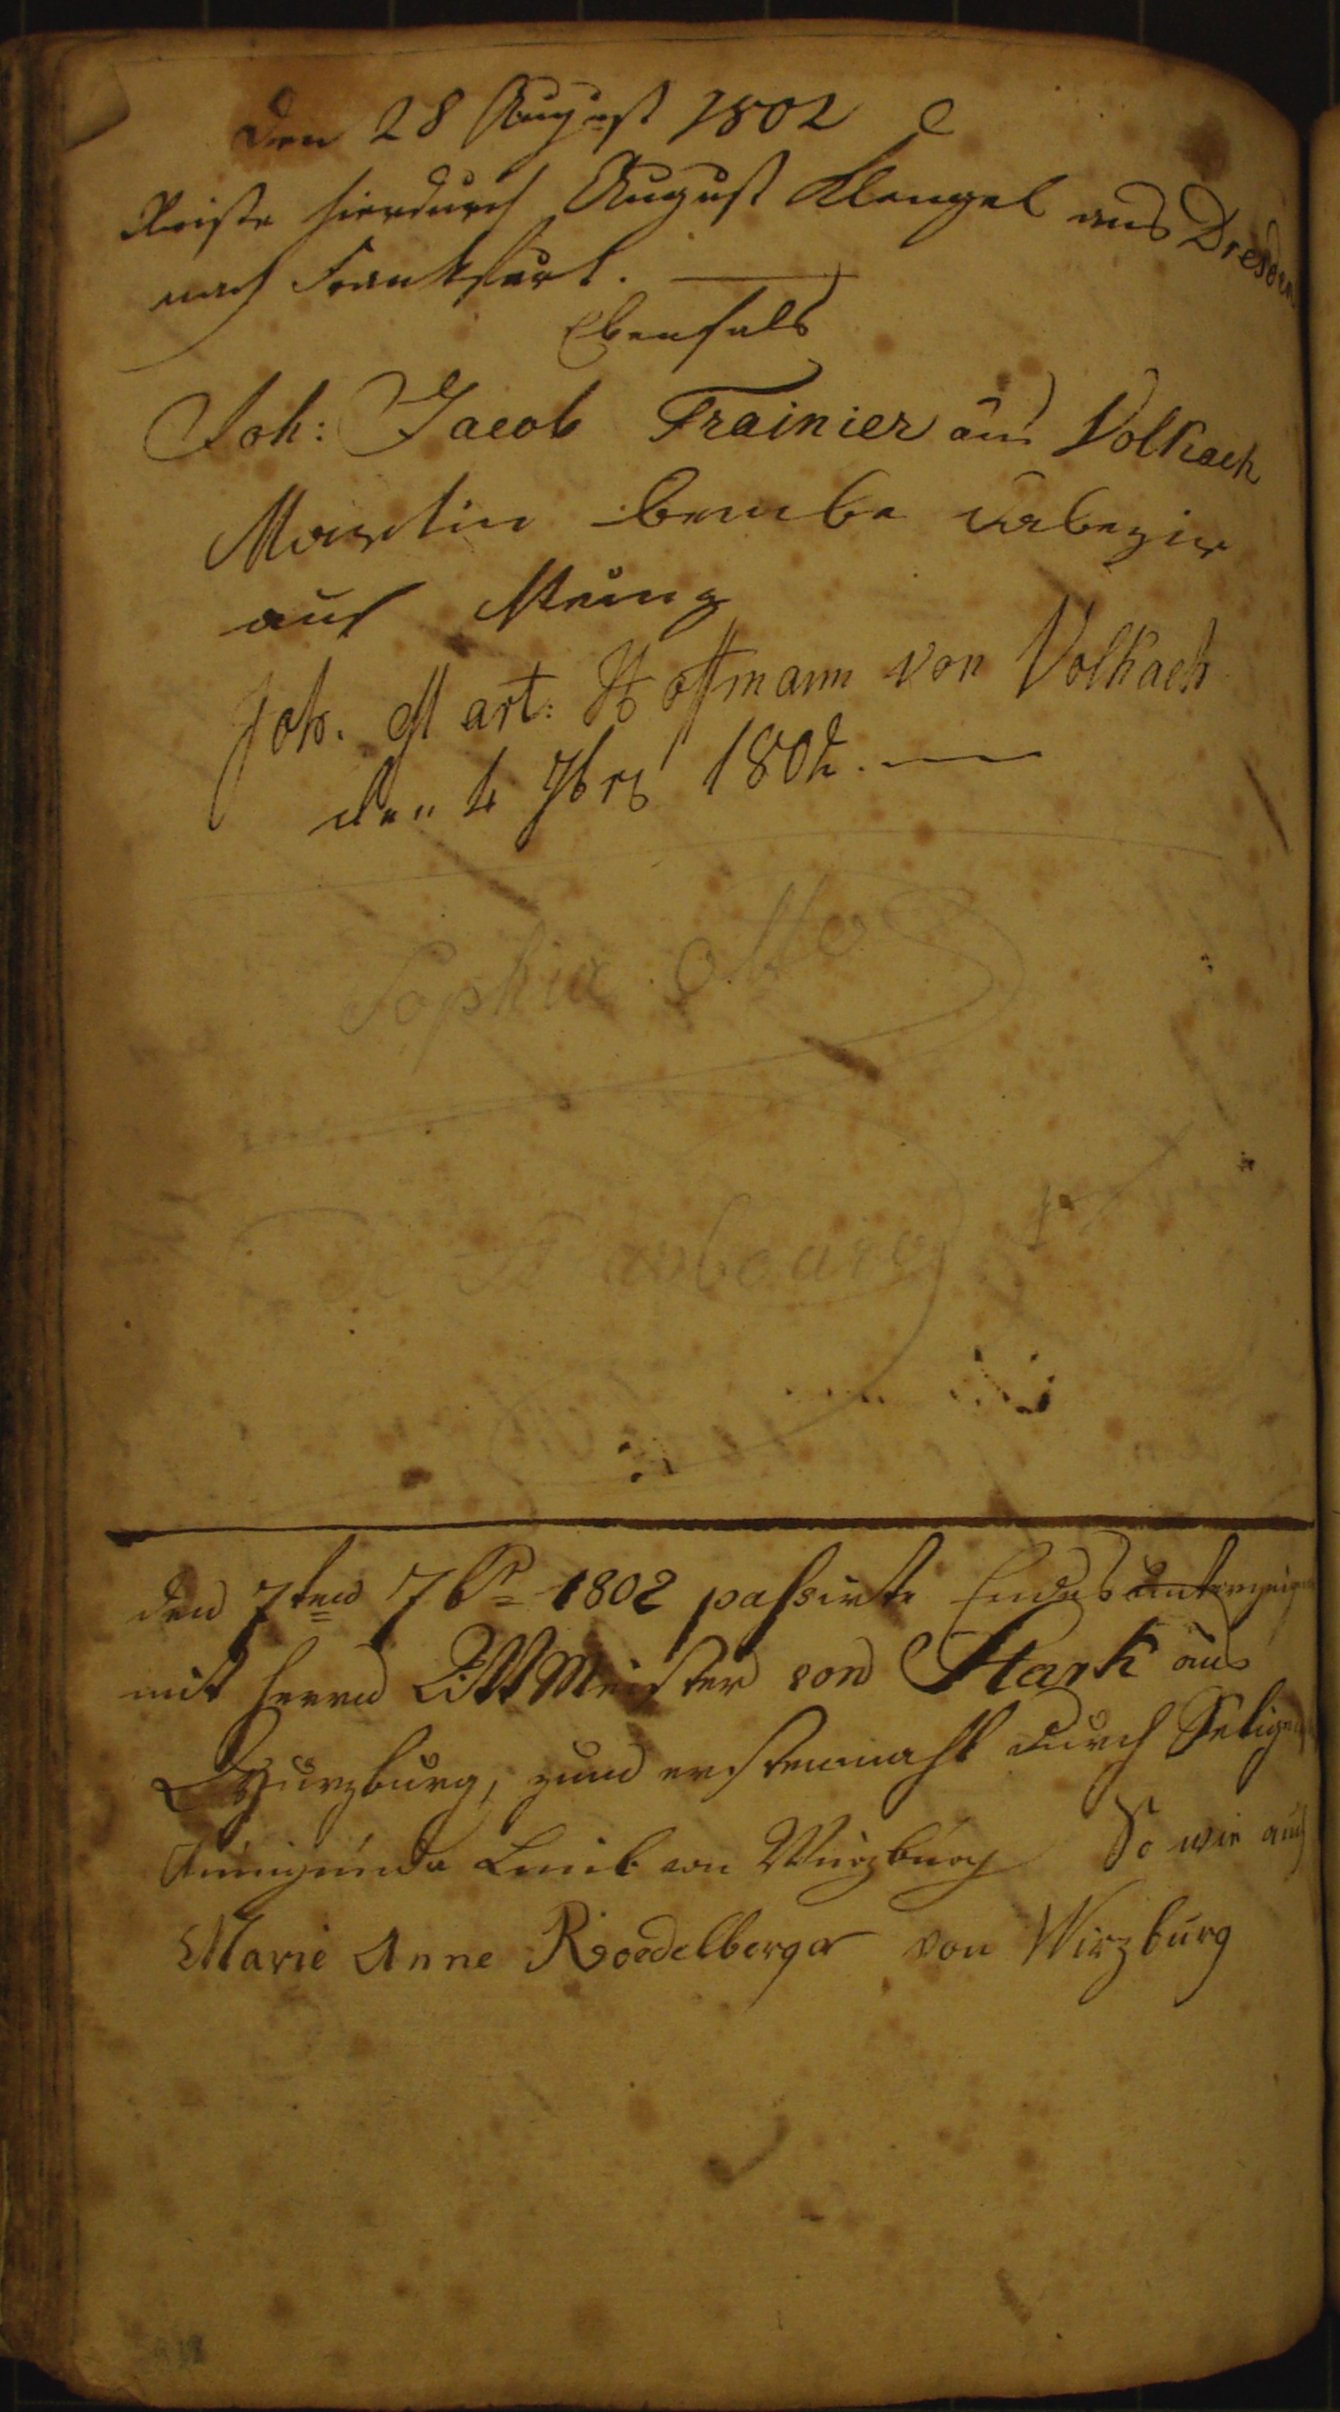 den 28 August 1802
Reiste hierdurch August Klengel aus Dresden
nach Frankfurt.
Ebenfals
Joh: Jacob Trainier aus Volkach
Martin bembe
aus Mainz
Joh. Mart: Hofmann von Volkach
den 4 7bris 1802.
Sophia Otto
den 7ten 7br 1802 passirte Endes
mit Herrn Rittmeister von Stark aus
Wurzburg, zum erstenmahl durch Selige
Kunigunda Leiib von Würzburg So wie auch
Marie Anne Roedelberger von Wirzburg